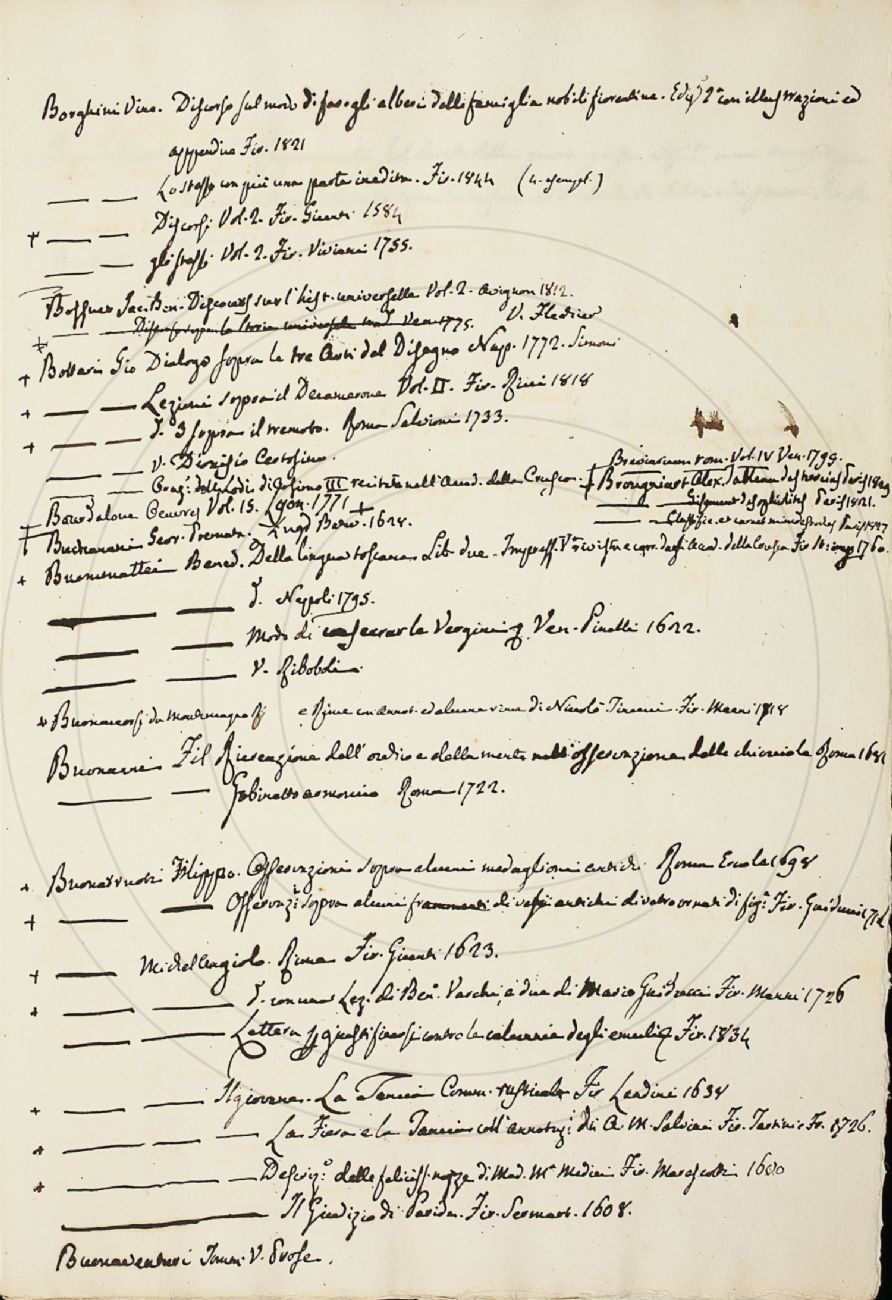 Borghini Vinc. Discorso sul modo di fare gli alberi delle famiglie nobili fiorentine. Ediz. 2ª con illustrazioni ed
appendice Fir. 1821
— — Lo stesso con più una parte inedita. Fir. 1844 (4. esempl.)
+ — — Discorsi Vol. 2. Fir. Giunti 1584
— — gli stessi Vol. 2. Fir. Viviani 1755.
Bossuet Jac. Ben. Discours sur l'hist. universelle Vol. 2. Avignon 1812.
+ — — Discorso sopra la storia universale trad. Ven. 1775. V. Flechier
+ Bottari Gio Dialoghi sopra le tre Arti del Disegno Nap. 1772. Simoni
+ — — Lezioni sopra il Decamerone Vol. II. Fir. Ricci 1818
+ — — d. 3 sopra il tremoto. Roma Salvioni 1733.
— — V. Dionisio Certosino.
— — Oraz. delle Lodi di Cosimo III recitata nell'Accad. della Crusca.
Breviarium rom. Vol. IV Ven. 1795.
+ Brongniart Alex. Tableau des terrains Paris 1829
— — Paris 1821.
— — Classific. et caract. Paris 1827
Bourdaloue Oeuvres Vol. 15. Lyon. 1771
+ Buchanani Geor. Poemata. Lugd. Batav. 1628.
+ Buommattei Bened. Della lingua toscana Lib. due. Impress. Vª rivista e corr. dagli Accad. della Crusca Fir. 1760.
— — d. Napoli 1795.
— — Modo di consecrar le Vergini Ven. Pinelli 1622.
— — V. Riboboli
+ Buonaccorsi da Montemagno e Rime con annot. ed alcune rime di Niccolò Tinucci. Fir. Manni 1718
Buonanni Fil Ricreazione dell'occhio e della mente nell'osservazione delle chiocciole Roma 1681
— — Gabinetto armonico Roma 1722.
+ Buonarruoti Filippo. Osservazioni sopra alcuni medaglioni antichi Roma Ercole 1698
+ — — Osservazi. sopra alcuni frammenti di vasi antichi di vetro ornati di fig.e Fir. Guiducci 1716
+ — Michelangiolo. Rime Fir. Giunti 1623.
+ — — d. con una Lez. di Ben. Varchi, e due di Mario Guiducci Fir. Manni 1726
— — Lettera per giustificarsi contro le calunnie degli emuli Fir. 1834
+ — — Il giovane. La Tancia Comm. rusticale Fir Landini 1638
+ — — — La Fiera e la Tancia coll'annotaz. di A. M. Salvini Fir. Tartini e Fr. 1726.
+ — — Descriz.e delle feliciss. nozze di Mad. Mª Medici Fir. Marescotti 1600
— Il Giudizio di Paride. Fir. Sermart. 1608.
Buonaventuri Tomm. V. Prose.